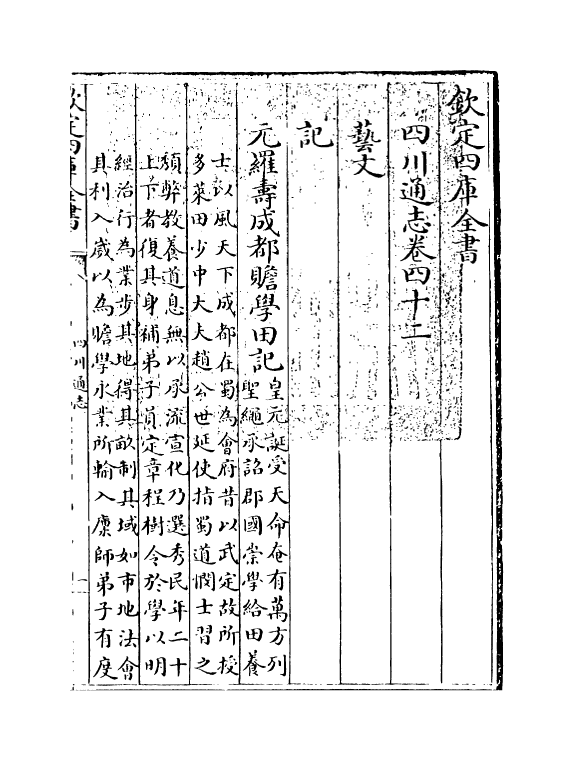 欽定四庫全書
四川通志卷四十二
藝文
記
元羅壽成都贍學田記
皇元誕受天命奄有萬方列
聖繩承詔郡國崇學給田養
士以風天下成都在蜀為會府昔以武定故所授
多萊田少中大夫趙公世延使指蜀道憫士習之
頽弊教養道息無以承流宣化乃選秀民年二十
上下者復其身補弟子員定章程樹令於學以明
經治行為業步其地得其畝制其域如市地法會
其利入歲以為贍學永業所輸入廩師弟子有度
欽定四庫全書
四川通志